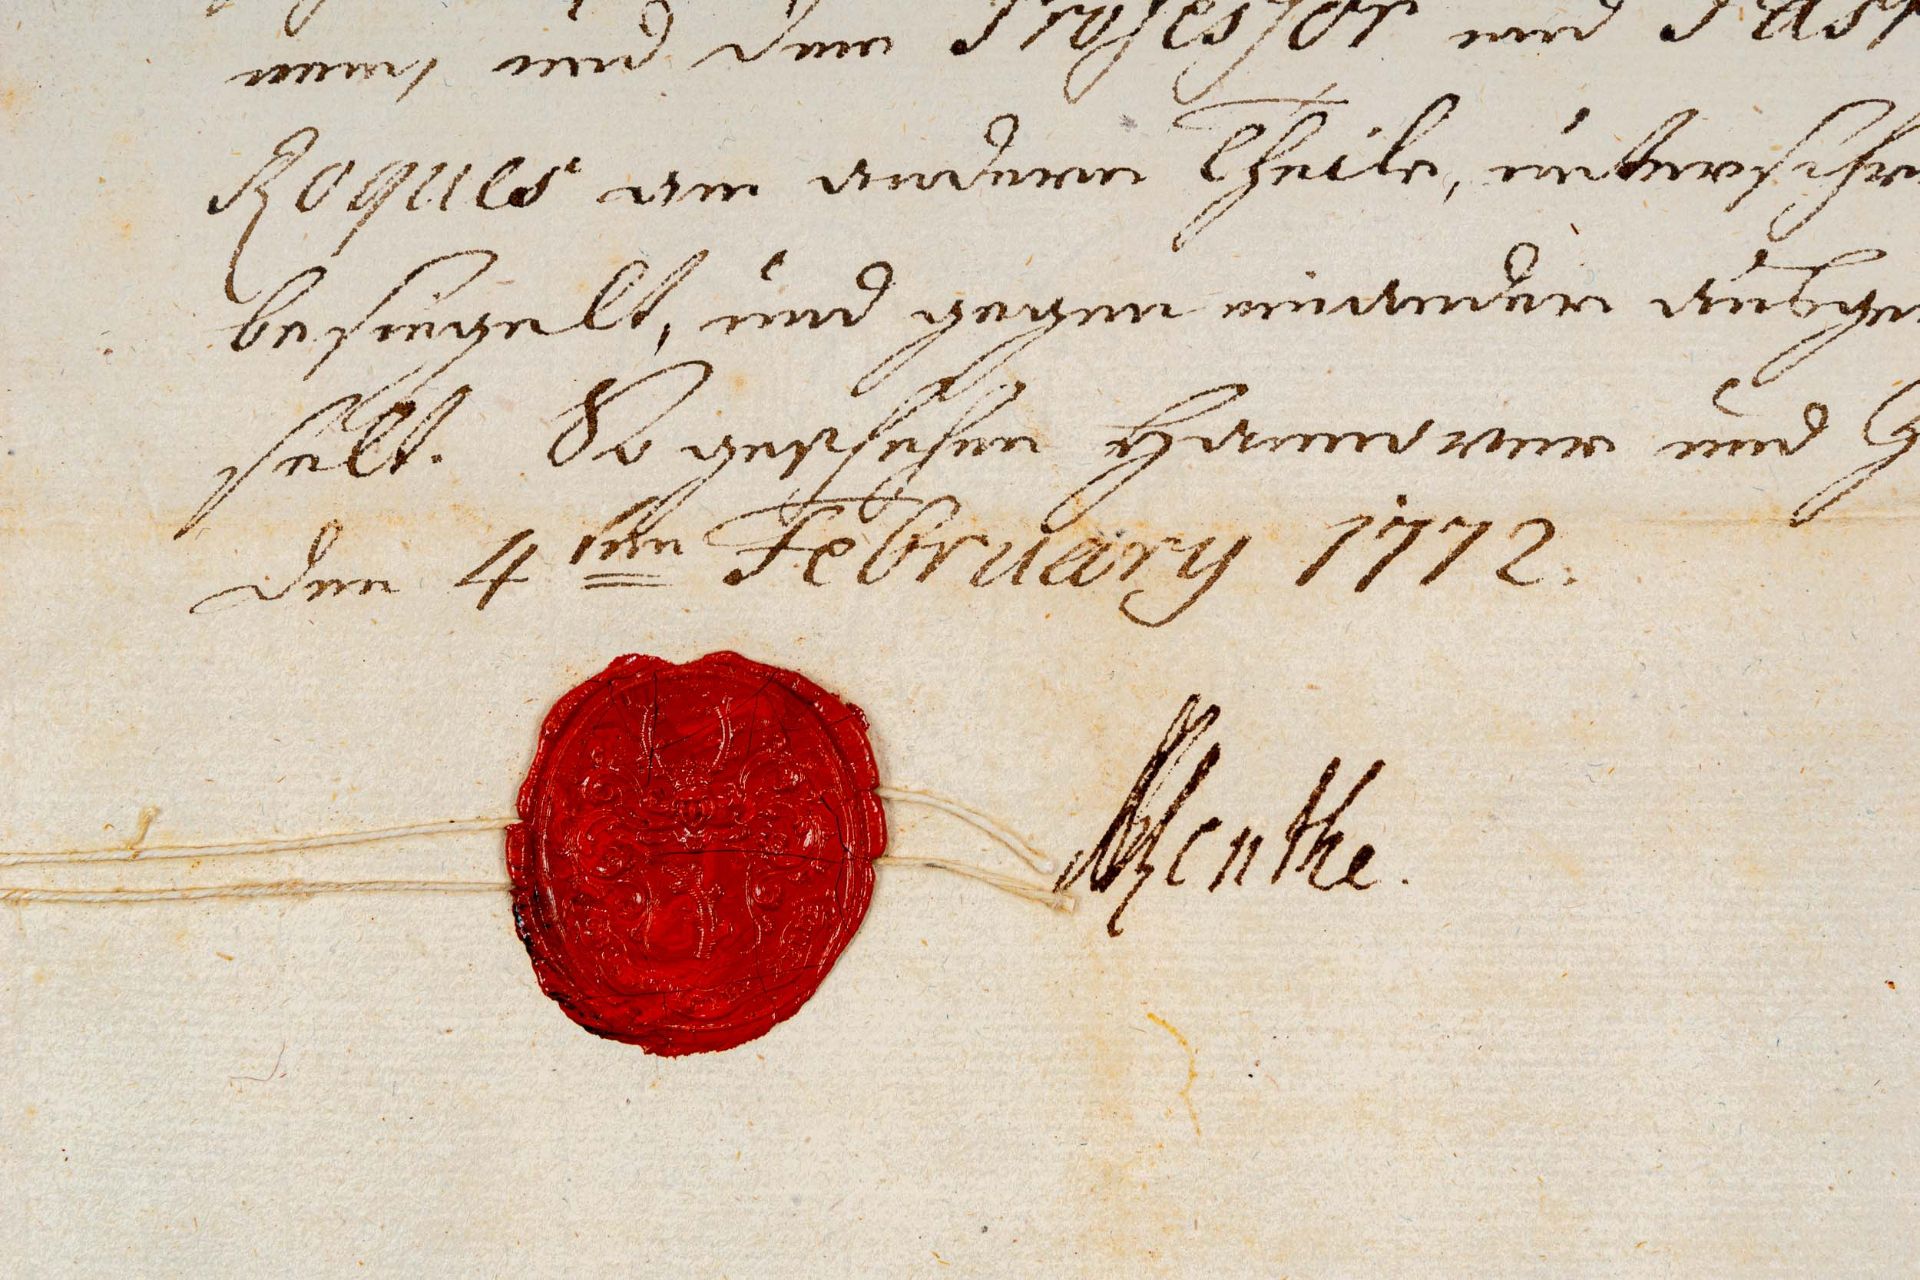 men, und dem Professor und Past
Roques am anderen Theile, unterschr
besiegelt, und gegen einander ausge
selt. So geschehen Hannover und
den 4ten February 1772.